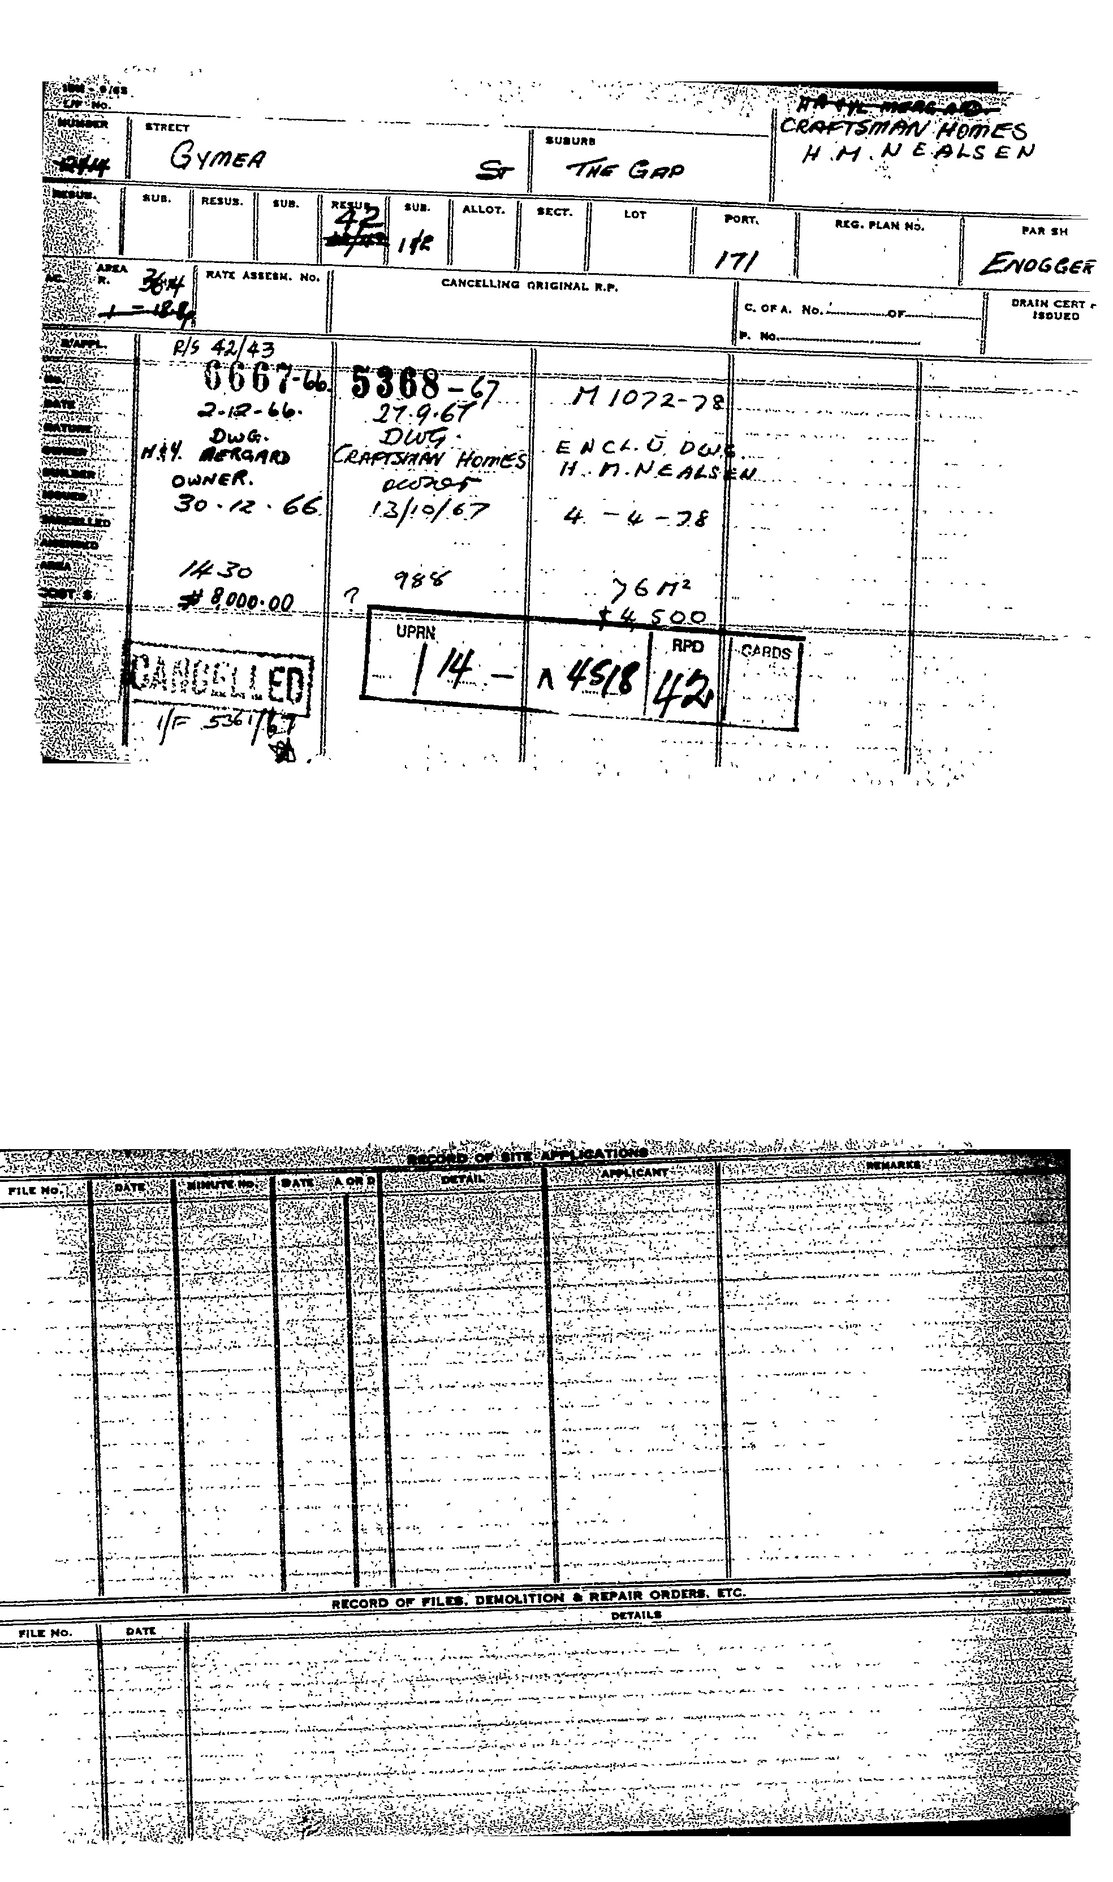 CRAFTSMAN HOMES
H.M. NEALSEN
NUMBER STREET SUBURB
GYMEA ST THE GAP
RESUB. SUB. RESUB. SUB. RESUB. SUB. ALLOT. SECT. LOT PORT. REG. PLAN NO. PARSH
42 1&2 171 ENOGGER
AREA RATE ASSESM. NO. CANCELLING ORIGINAL R.P. C. OF A. NO. OF DRAIN CERT
R. ISSUED
P. NO.
R/S 42/43
NO. 6667-66. 5368-67 M 1072-78
DATE 2-12-66. 27.9.67
NATURE DWG. DWG. ENCL. U. DWG.
OWNER H&Y. MERGARD CRAFTSMAN HOMES H.M. NEALSEN
BUILDER OWNER.
ISSUED 30.12.66 13/10/67 4-4-78
CANCELLED
AMENDED
AREA 1430 988 76 M²
COST $ $8,000.00 ? $4,500
UPRN RPD CARDS
114 - 4518 42
CANCELLED
RECORD OF SITE APPLICATIONS
FILE NO. DATE MINUTE NO. DATE A OR D DETAIL APPLICANT REMARKS
RECORD OF FILES, DEMOLITION & REPAIR ORDERS, ETC.
FILE NO. DATE DETAILS